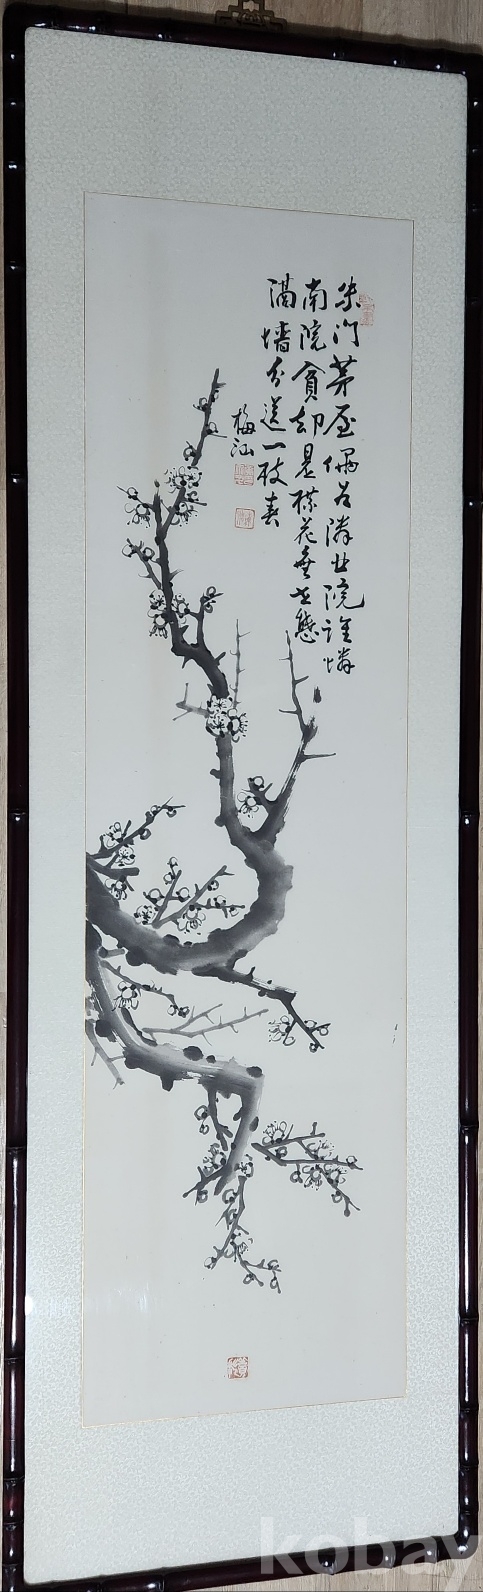 朱門茅屋偶為隣北院誰憐
南院貧却是梅花無世態
滿墻分送一枝春
梅汕
kobay